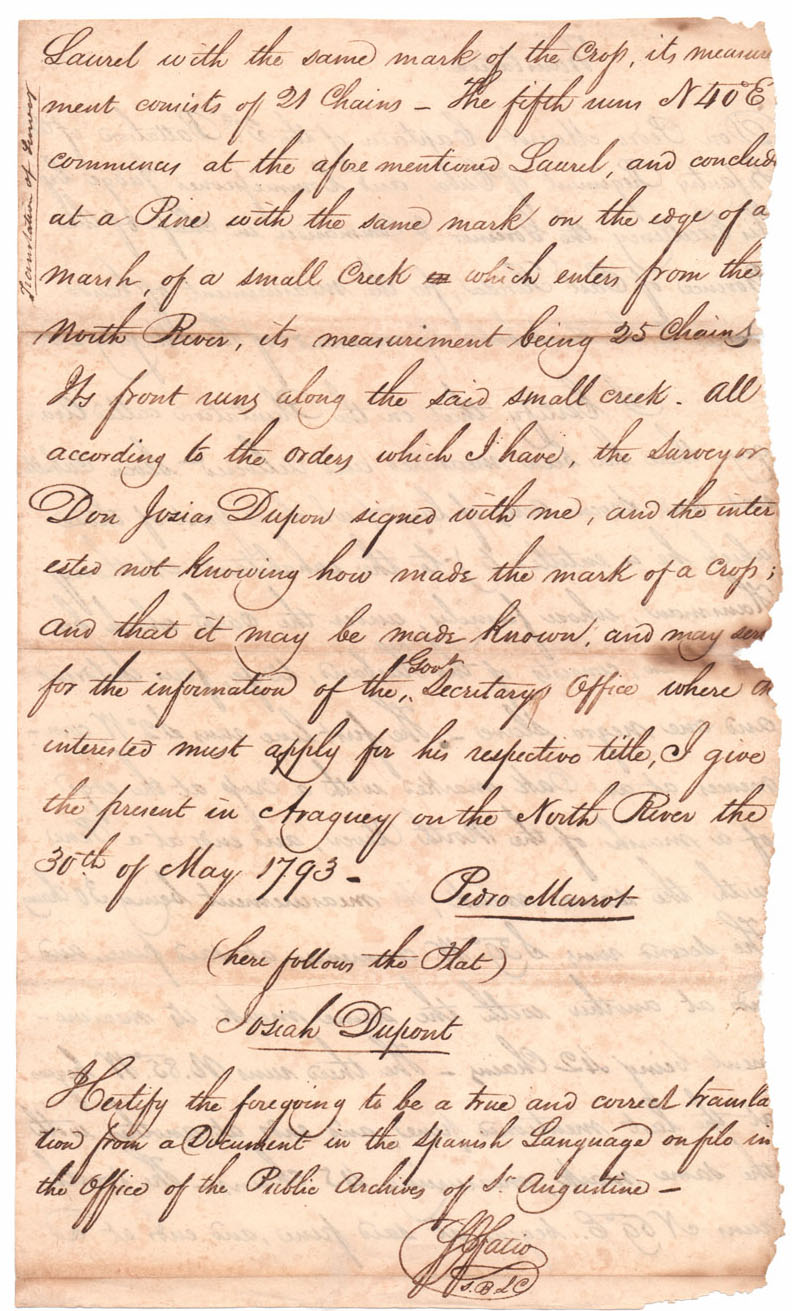 Translation of Survey
Laurel with the same mark of the Crop, its measure
ment consists of 21 Chains – The fifth runs N 40° E
commences at the afore mentioned Laurel, and conclude
at a Pine with the same mark on the edge of a
marsh, of a small Creek which enters from the
North River, its measuriment being 25 Chains
Its front runs along the said small creek. All
according to the orders which I have, the Surveyor
Don Josias Dupon signed with me, and the inter
ested not knowing how made the mark of a Crop;
and that it may be made known, and may ser
for the information of the Govt Secretarys Office where
interested must apply for his respective title, I give
the present in Araguey on the North River the
30th of May 1793 –
Pedro Marrot
(here follows the Plat)
Josiah Dupont
I Certify the foregoing to be a true and correct transla
tion from a Document in the Spanish Language on file in
the Office of the Public Archives of St Augustine –
Fatio
S. B L C